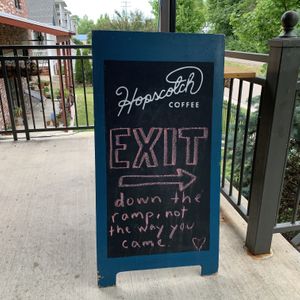 Hopscotch
COFFEE
EXIT
down the
ramp, not
the way you
came.